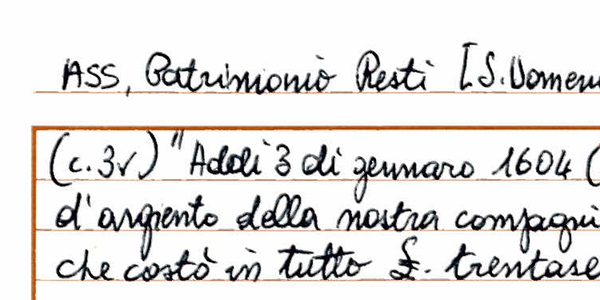 ASS, Patrimonio Resti [S. Domen
(c.3v) "Addi 3 di gennaro 1604 (
d'argento della nostra compagni
che costò in tutto £. trentase